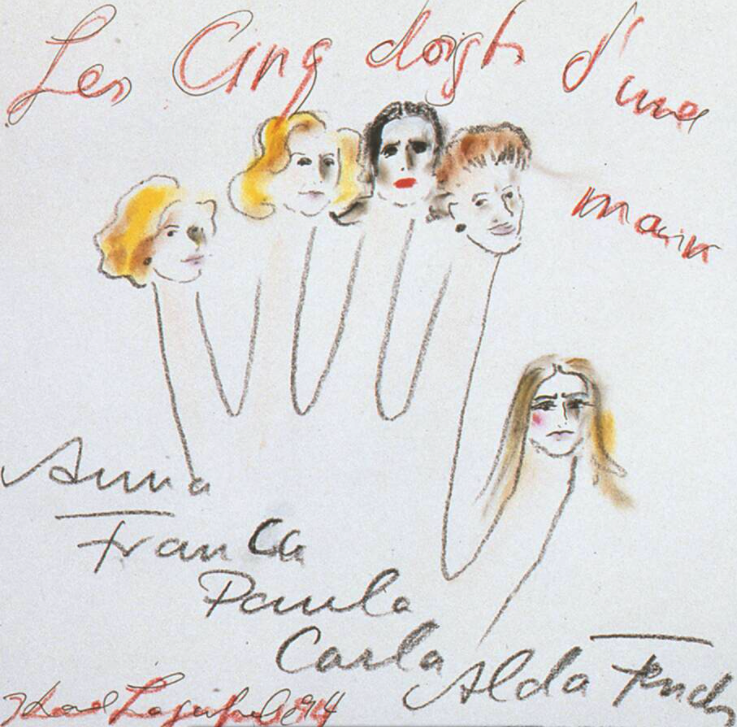 Les Cinq doigts d'une
main
Anna
Franca
Paula
Carla
Alda Fendi
Karl Lagerfeld